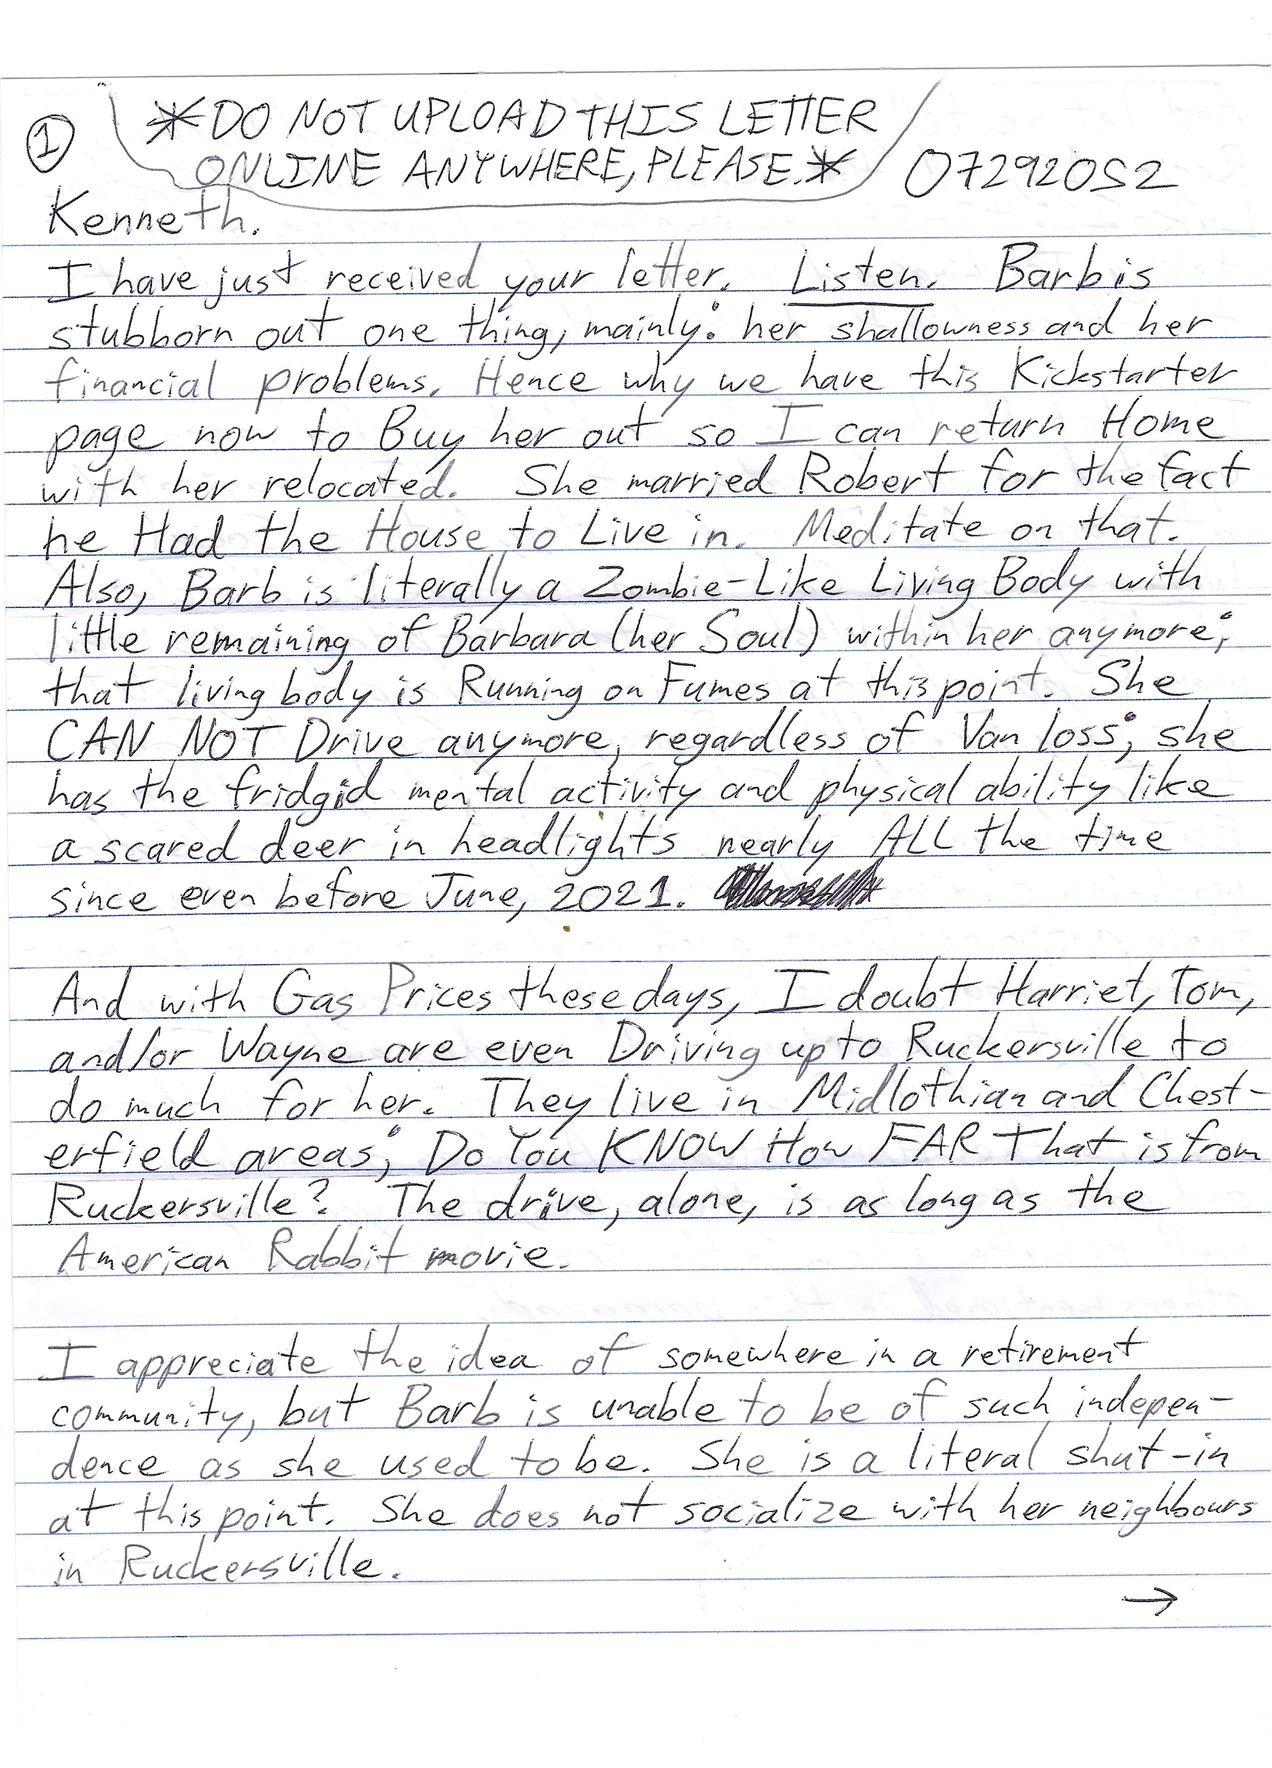 1
*DO NOT UPLOAD THIS LETTER
ONLINE ANYWHERE, PLEASE.*
07292OS2
Kenneth.
I have just received your letter. Listen. Barb is
stubborn out one thing, mainly: her shallowness and her
financial problems. Hence why we have this Kickstarter
page now to Buy her out so I can return Home
with her relocated. She married Robert for the fact
he Had the House to Live in. Meditate on that.
Also, Barb is literally a Zombie-Like Living Body with
little remaining of Barbara (her Soul) within her anymore;
that living body is Running on Fumes at this point. She
CAN NOT Drive anymore, regardless of Van loss; she
has the fridgid mental activity and physical ability like
a scared deer in headlights nearly ALL the time
since even before June, 2021.
And with Gas Prices these days, I doubt Harriet, Tom,
and/or Wayne are even Driving up to Ruckersville to
do much for her. They live in Midlothian and Chest-
erfield areas; Do You KNOW How FAR That is from
Ruckersville? The drive, alone, is as long as the
American Rabbit movie.
I appreciate the idea of somewhere in a retirement
community, but Barb is unable to be of such indepen-
dence as she used to be. She is a literal shut-in
at this point. She does not socialize with her neighbours
in Ruckersville.
→